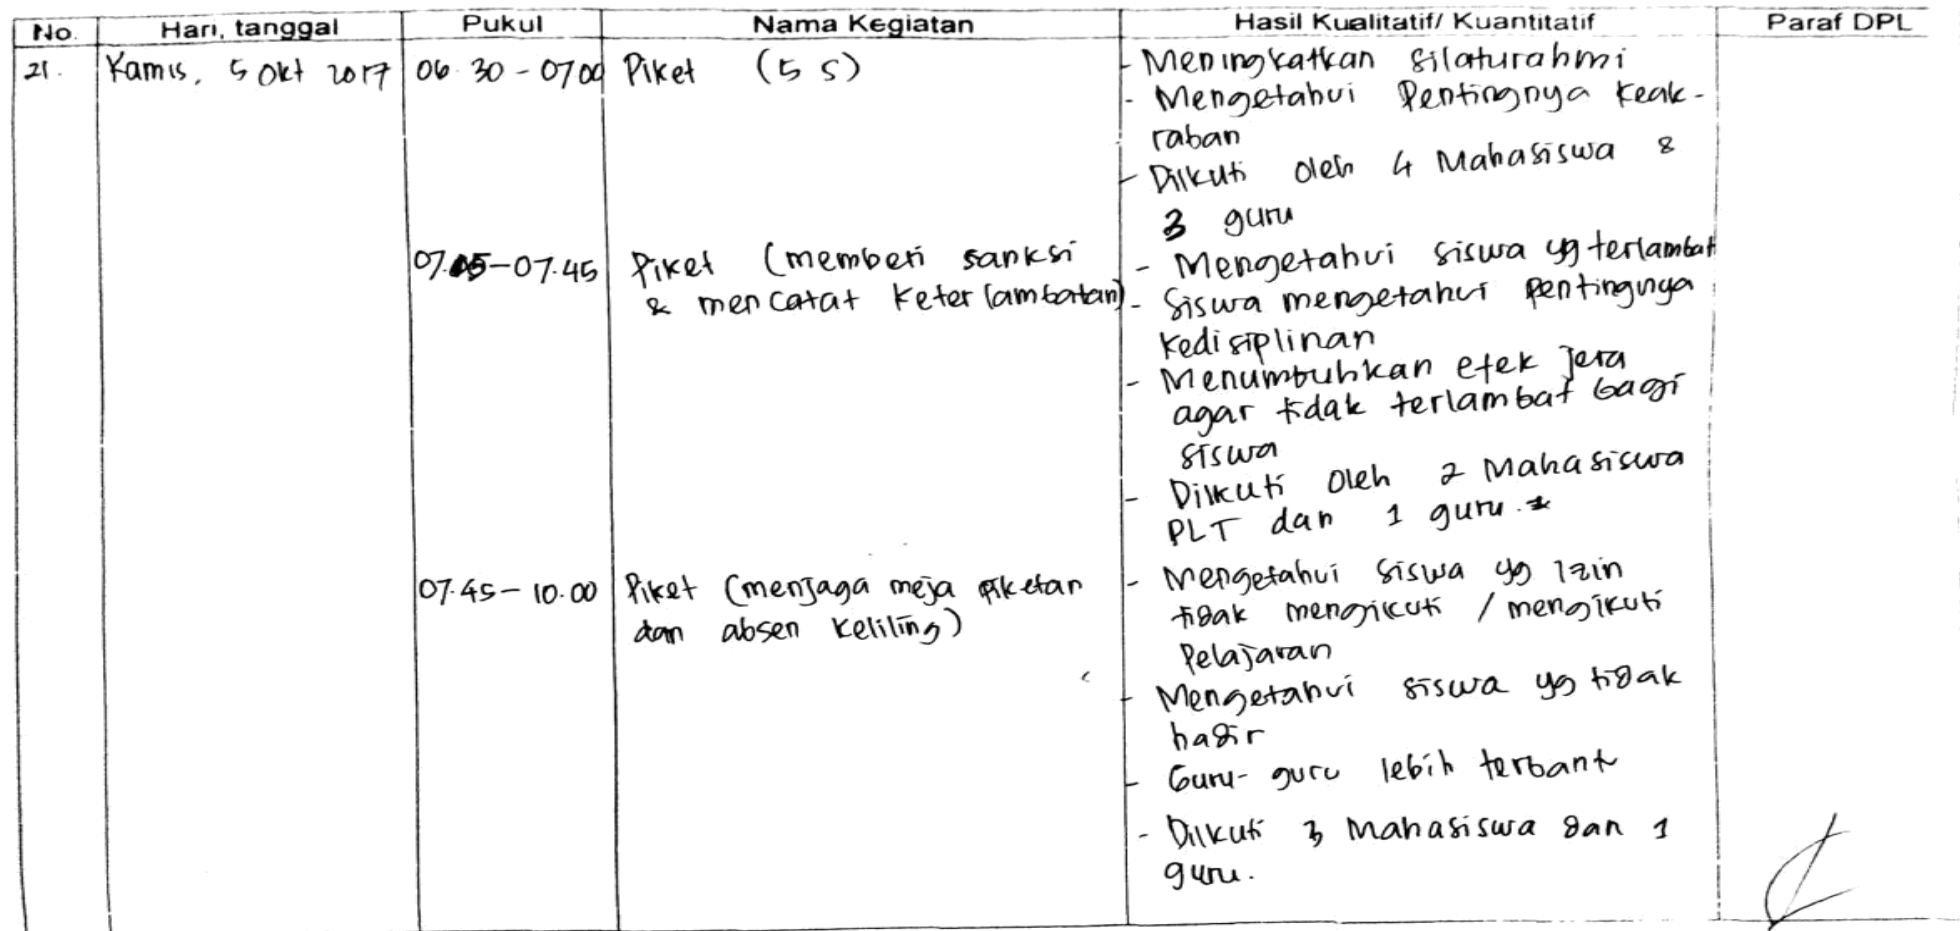 No. Hari, tanggal Pukul Nama Kegiatan Hasil Kualitatif/ Kuantitatif Paraf DPL
21. Kamis, 5 Okt 2017 06.30 - 07.00 Piket (5 S)
- Meningkatkan silaturahmi
- Mengetahui Pentingnya keak-
raban
- Diikuti oleh 4 Mahasiswa &
3 guru
07.05 - 07.45 Piket (memberi sanksi
& mencatat keterlambatan)
- Mengetahui siswa yg terlambat
- Siswa mengetahui pentingnya
kedisiplinan
- Menumbuhkan efek jera
agar tidak terlambat bagi
siswa
- Diikuti Oleh 2 Mahasiswa
PLT dan 1 guru.
07.45 - 10.00 Piket (menjaga meja piketan
dan absen keliling)
- Mengetahui siswa yg izin
tidak mengikuti / mengikuti
Pelajaran
- Mengetahui siswa yg tidak
hadir
- Guru-guru lebih terbantu
- Diikuti 3 Mahasiswa dan 1
guru.